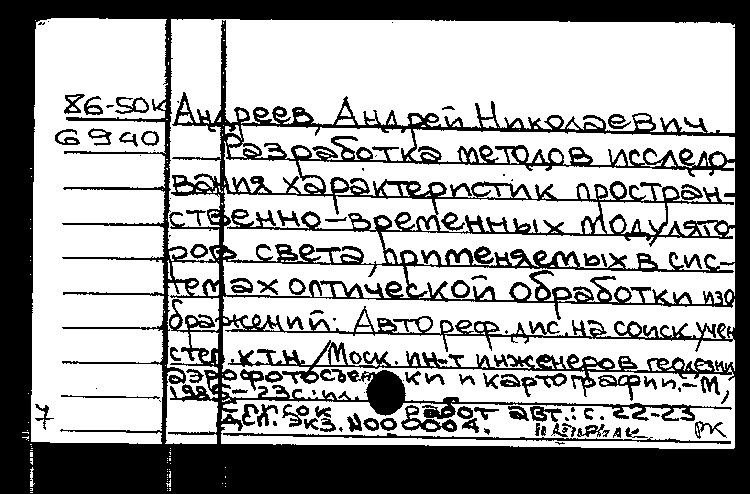 86-50к Андреев, Андрей Николаевич.
6940
Разработка методов исследо-
вания характеристик простран-
ственно-временных модулято-
ров света, применяемых в сис-
темах оптической обработки изо
бражений: Автореф. дис. на соиск. учен
степ. к.т.н. / Моск. ин-т инженеров геодезии
аэрофотосъемки и картографии. - М,
1985. - 23с.: ил.
Список работ авт.: с. 22-23
7 ДСП. Экз. N000004. РК